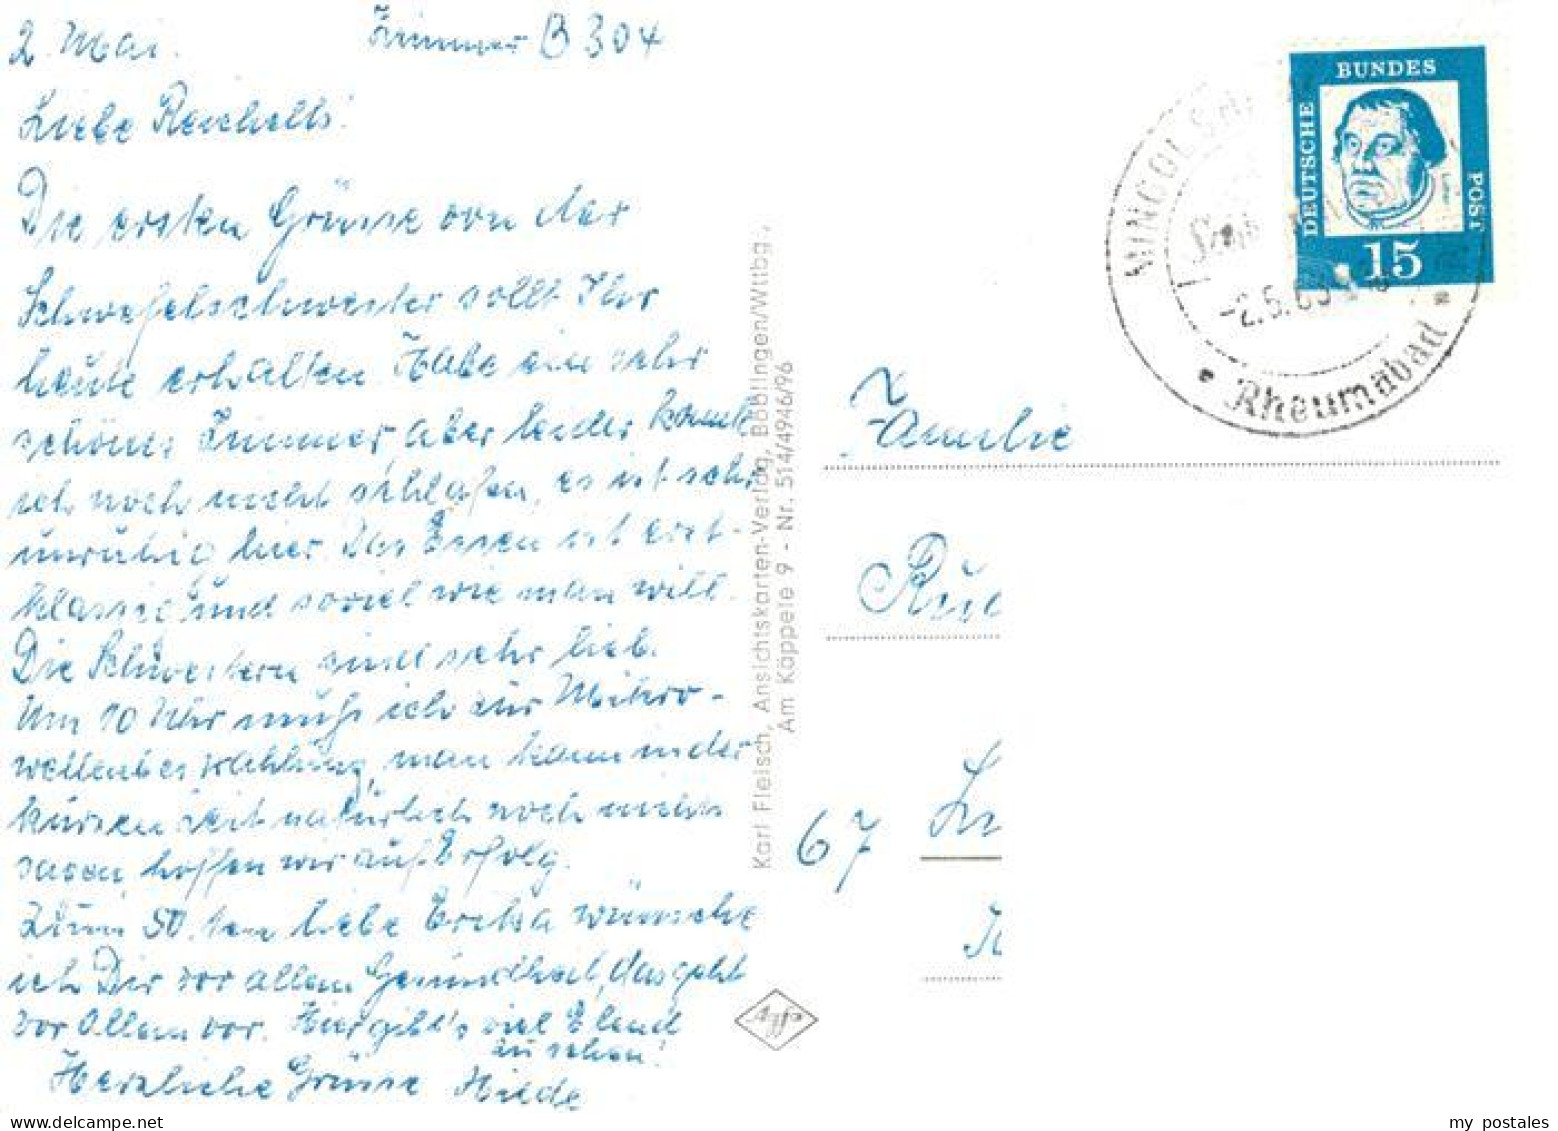 2. Mai. Zimmer B 304
Liebe Reichelts!
Die ersten Grüsse von der
Schwefelschwester sollt Ihr
heute erhalten. Habe ein sehr
schönes Zimmer, aber leider konnte
ich noch nicht schlafen, es ist sehr
unruhig hier. Das Essen ist erst-
klassig und soviel wie man will.
Die Schwestern sind sehr lieb.
Um 10 Uhr muß ich zur Mikro-
wellenbestrahlung, man kann in der
kurzen Zeit natürlich noch nichts
sagen, hoffen wir auf Erfolg.
Zum 50. ten liebe Erika wünsche
ich Dir vor allem Gesundheit, das geht
vor Allem vor. Hier gibt's viel Elend
zu sehen!
Herzliche Grüsse Hilde
Karl Fleisch, Ansichtskarten-Verlag, Böblingen/Wttbg.,
Am Käppele 9 - Nr. 514/4946/96
DEUTSCHE BUNDES POST
15
-2.5.63
Rheumabad
Familie
67
my postales